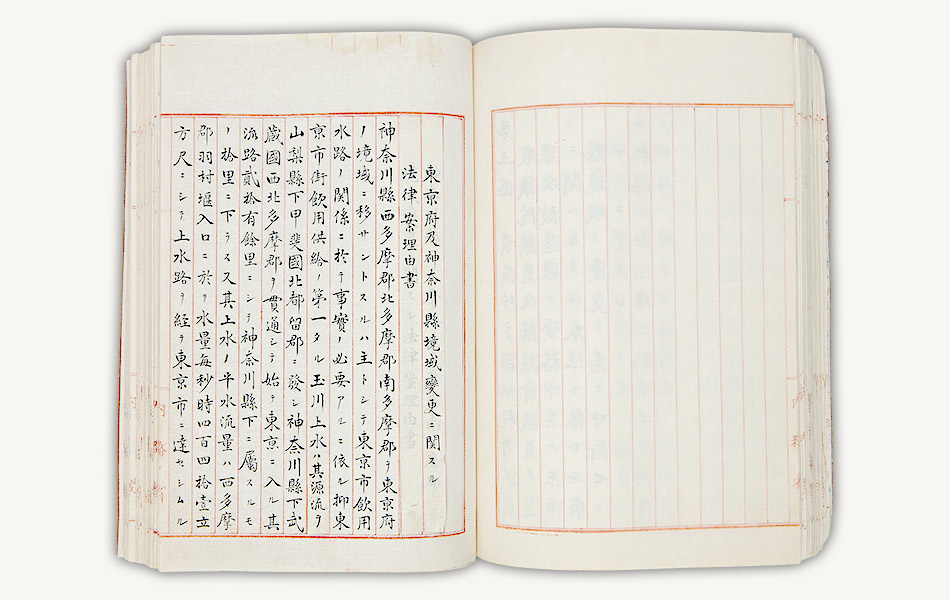 東京府及神奈川縣境域變更ニ關スル
法律案理由書
神奈川縣西多摩郡北多摩郡南多摩郡ヲ東京府
ノ境域ニ移サントスルハ主トシテ東京市飲用
水路ノ関係ニ於テ事實ノ必要アルニ依ル抑東
京市街飲用供給ノ第一タル玉川上水ハ其源流ヲ
山梨縣下甲斐國北都留郡ニ發シ神奈川縣下武
蔵國西北多摩郡ヲ貫通シテ始テ東京ニ入ル其
流路貳拾有餘里ニシテ神奈川縣下ニ屬スルモ
ノ拾里ニ下ラス又其上水ノ平水流量ハ西多摩
郡羽村堰入口ニ於テ水量毎秒時四百四拾壹立
方尺ニシテ上水路ヲ経テ東京市ニ達セシムル